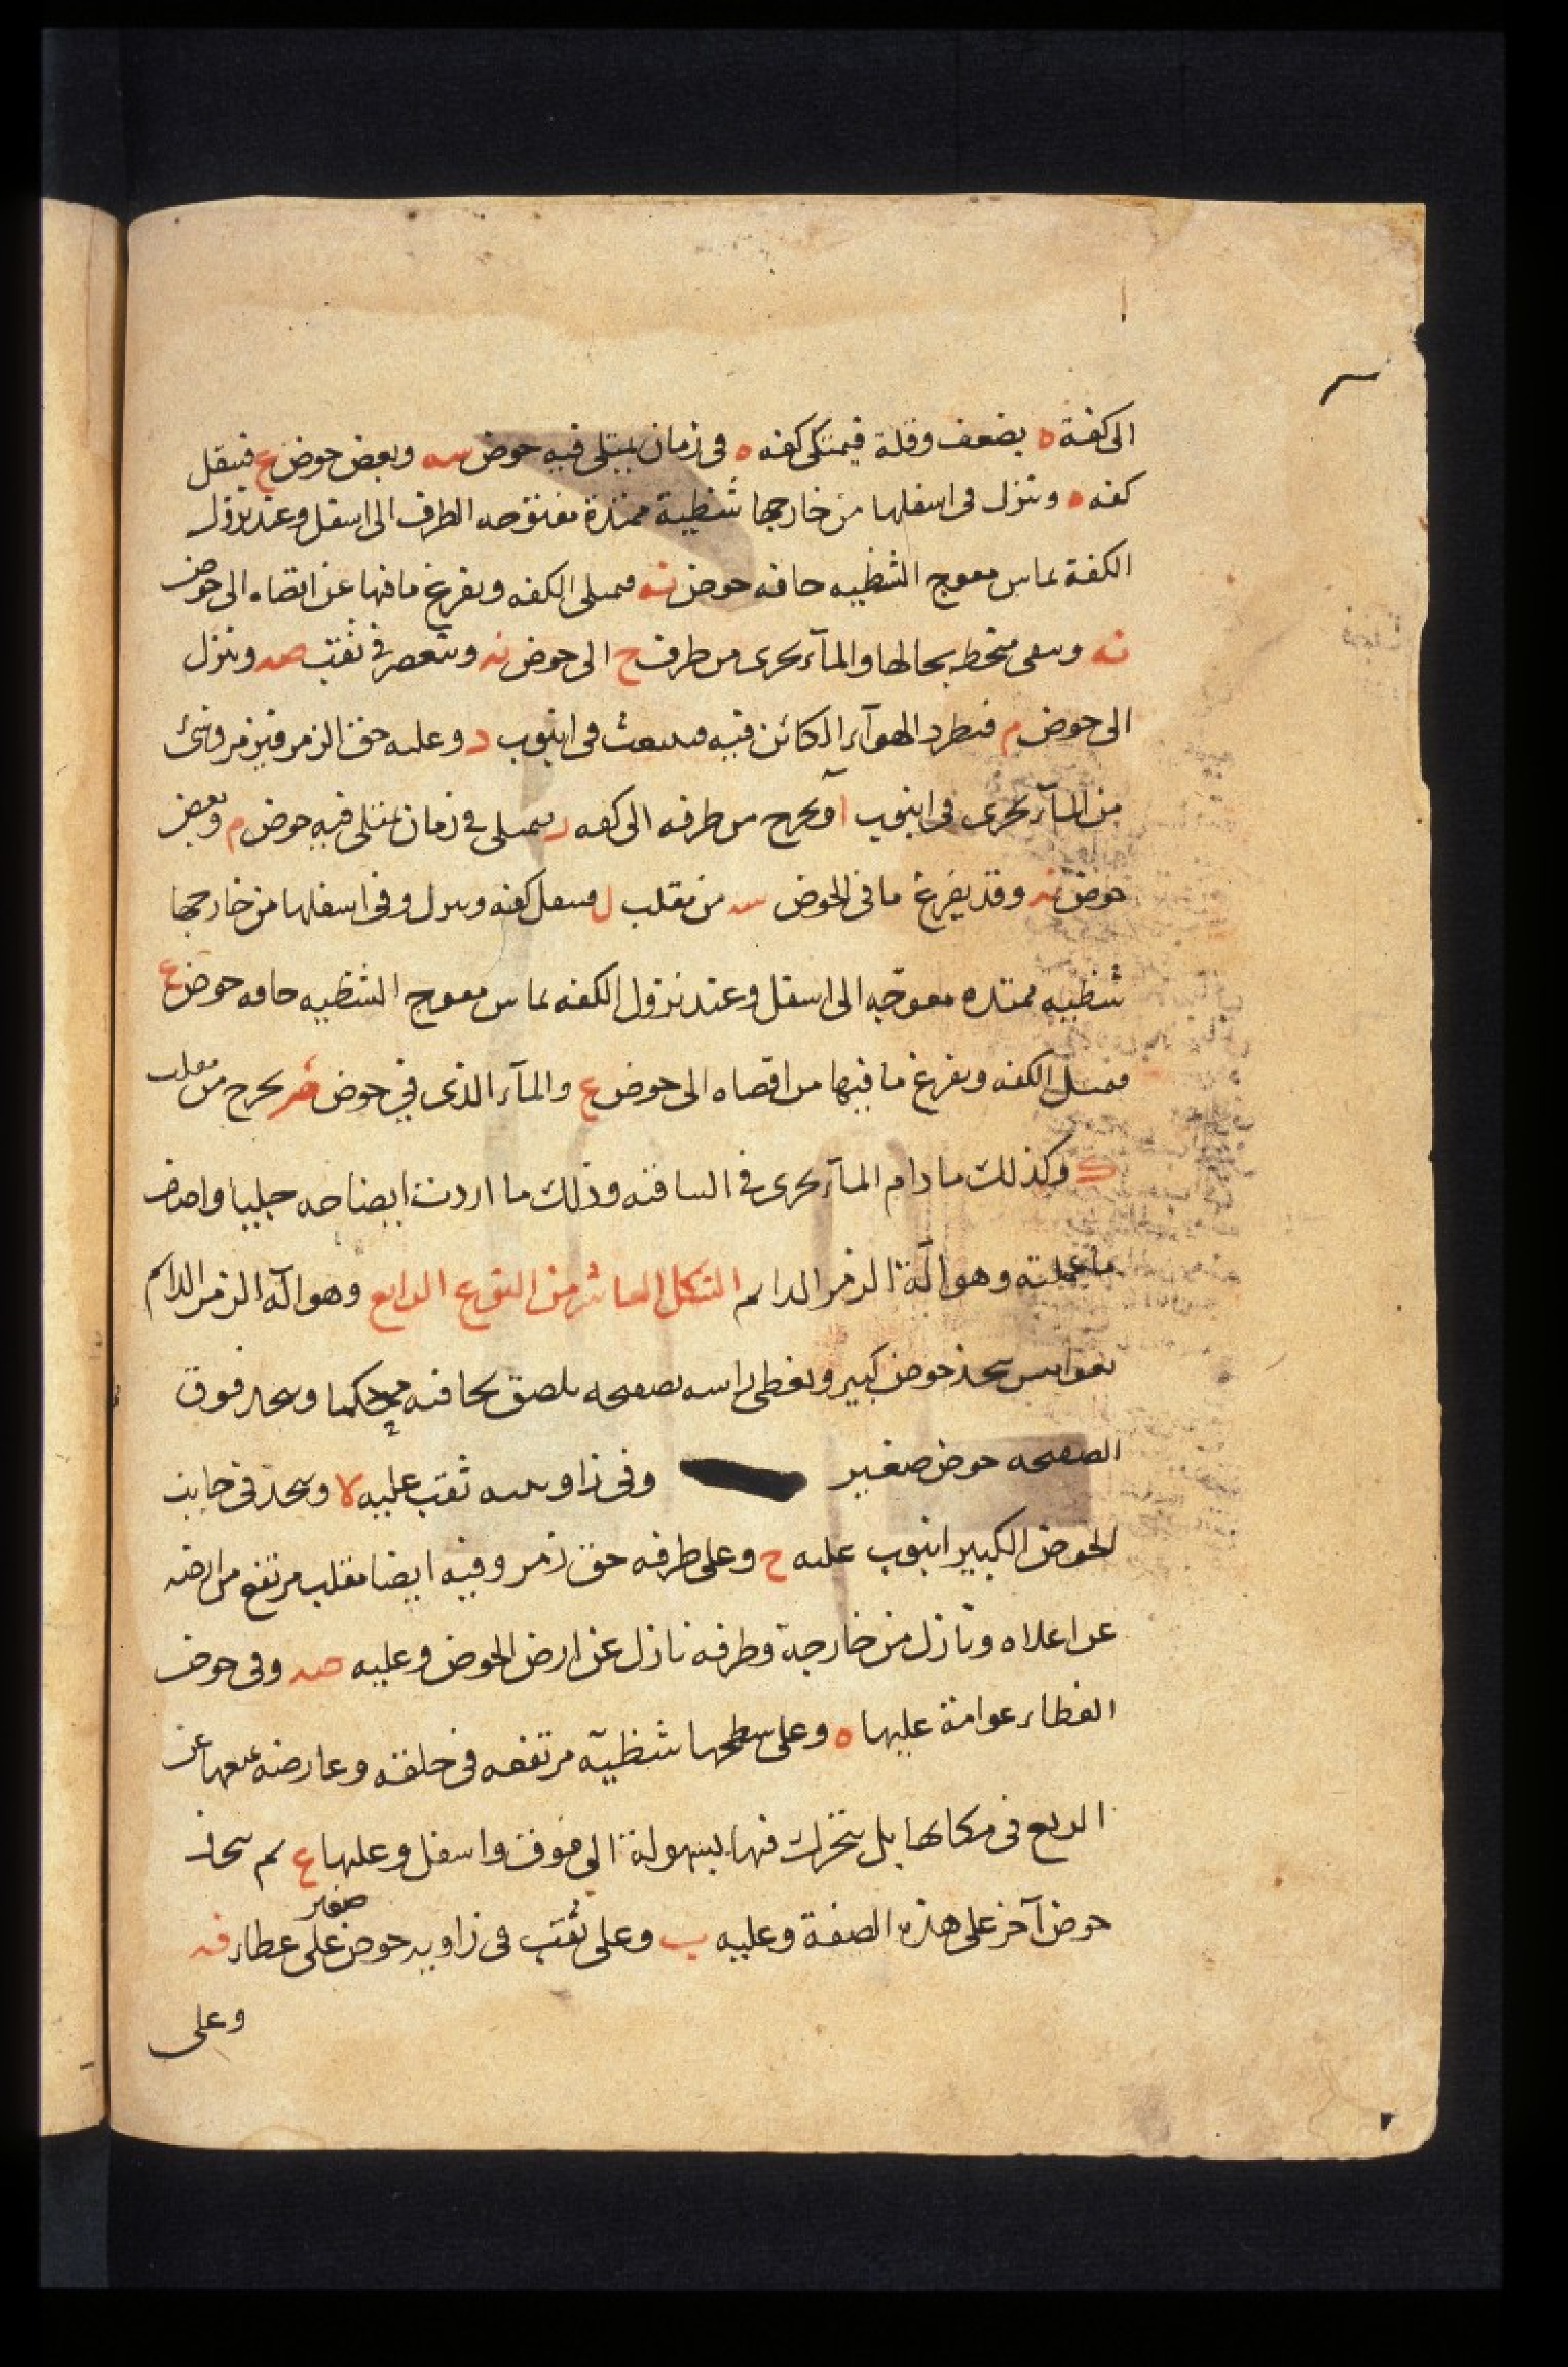 الى كفة ه بضعف وقلة فيمتلى كفه ه فى زمان يمتلى فيه حوض سه وبعض حوض ع فيثقل
كفه ه وتنزل فى اسفلها من خارجها شظية ممتدة معوجه الطرف الى اسفل وعند نزول
الكفة يماس معوج الشظيه حافه حوض نه فتميل الكفه ويفرغ ما فيها عن اقصاه الى حوض
نه وتبقى منحطه بحالها والمآء يجرى من طرف ح الى حوض نه وينعصر فى ثقب صه وينزل
الى حوض م فيطرد الهوآء الكائن فيه فينبعث فى انبوب د وعليه حق الزمر فيزمر وشئ
من المآء يجرى فى انبوب ا ويخرج من طرفه الى كفه ر يمتلى فى زمان يمتلى فيه حوض م وبعض
حوض نه وقد يفرغ ما فى الحوض سه من مقلب ل فيثقل كفه وينزل وفى اسفلها من خارجها
شظيه ممتده معوجه الى اسفل وعند نزول الكفه يماس معوج الشظيه حافه حوض ع
فتميل الكفه ويفرغ ما فيها من اقصاه الى حوض ع والمآء الذى فى حوض يخرج من مقلب
ك وكذلك ما دام المآء يجرى فى الساقيه وذلك ما اردت ايضاحه جليا واصف
ما عملته وهو آلة الزمر الدائم الشكل العاشر من النوع الرابع وهو آله الزمر الدائم
يتخذ حوض كبير ويغطى راسه بصفيحه يلصق بحافته محكما ويتخذ فوق
الصفيحه حوض صغير وفى زاويته ثقب عليه لا ويتخذ فى جانب
الحوض الكبير انبوب عليه ح وعلى طرفه حق زمر وفيه ايضا مقلب مرتفع من ارضه
عن اعلاه ونازل من خارجه وطرفه نازل عن ارض الحوض وعليه صه وفى حوض
الغطاء عوامة عليها ه وعلى سطحها شظيه مرتفعه فى حلقه وعارضه يمنعها عن
فى مكانها بل يتحرك فيها بسهولة الى فوق واسفل وعليها ع ثم يتخذ
حوض آخر على هذه الصفة وعليه ب وعلى ثقب فى زاويه حوض صغير على غطاء فه
وعلى